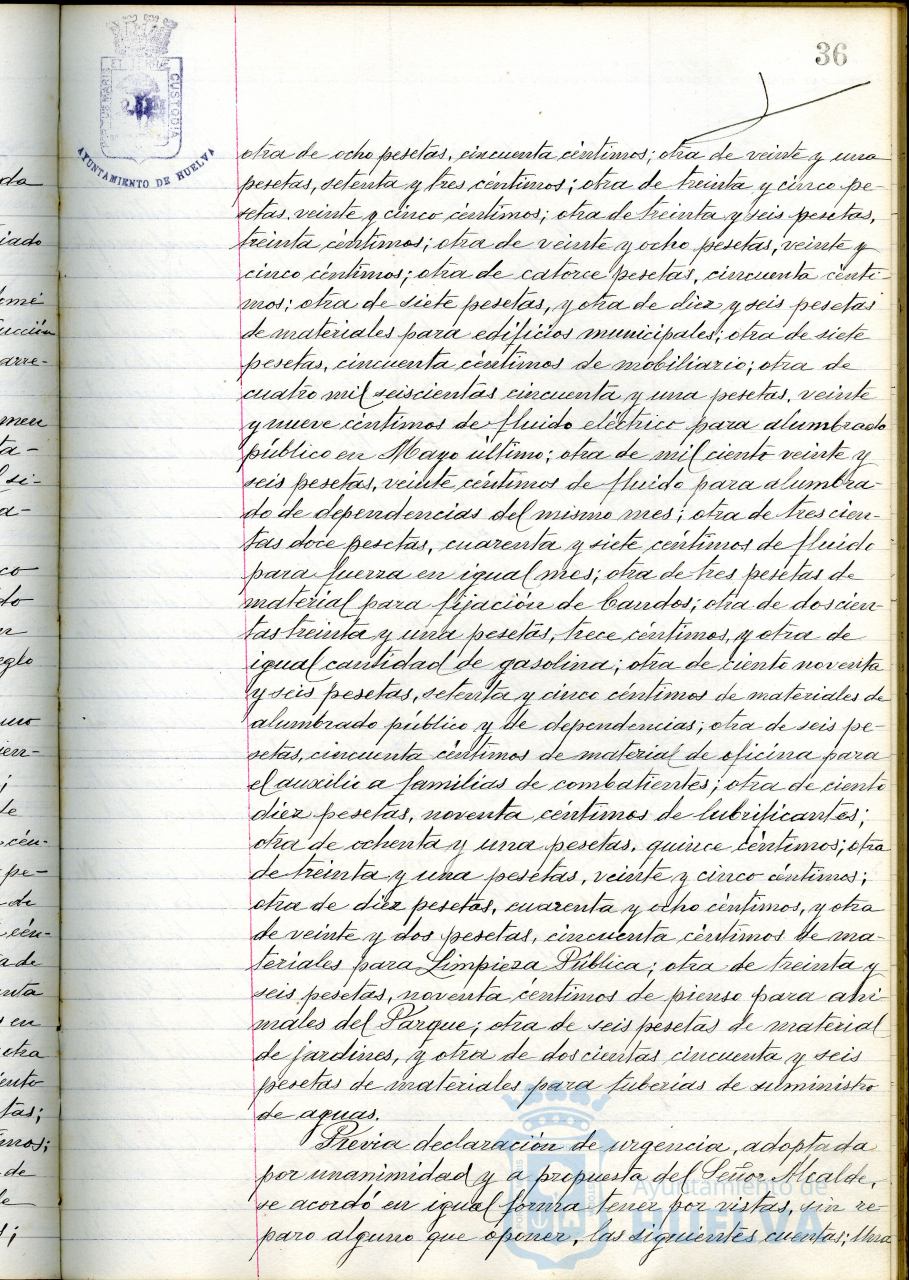 36
PORTUS MARIS ET TERRAE CUSTODIA
AYUNTAMIENTO DE HUELVA
otra de ocho pesetas, cincuenta céntimos; otra de veinte y una
pesetas, setenta y tres céntimos; otra de treinta y cinco pe-
setas, veinte y cinco céntimos; otra de treinta y seis pesetas,
treinta céntimos; otra de veinte y ocho pesetas, veinte y
cinco céntimos; otra de catorce pesetas, cincuenta cénti-
mos; otra de siete pesetas, y otra de diez y seis pesetas
de materiales para edificios municipales; otra de siete
pesetas, cincuenta céntimos de mobiliario; otra de
cuatro mil seiscientas cincuenta y una pesetas, veinte
y nueve céntimos de fluido eléctrico para alumbrado
público en Mayo último; otra de mil ciento veinte y
seis pesetas, veinte céntimos de fluido para alumbra-
do de dependencias del mismo mes; otra de trescien-
tas doce pesetas, cuarenta y siete céntimos de fluido
para fuerza en igual mes; otra de tres pesetas de
material para fijación de bandos; otra de doscien-
tas treinta y una pesetas, trece céntimos, y otra de
igual cantidad de gasolina; otra de ciento noventa
y seis pesetas, setenta y cinco céntimos de materiales de
alumbrado público y de dependencias; otra de seis pe-
setas, cincuenta céntimos de material de oficina para
el auxilio a familias de combatientes; otra de ciento
diez pesetas, noventa céntimos de lubrificantes;
otra de ochenta y una pesetas, quince céntimos; otra
de treinta y una pesetas, veinte y cinco céntimos;
otra de diez pesetas, cuarenta y ocho céntimos, y otra
de veinte y dos pesetas, cincuenta céntimos de ma-
teriales para Limpieza Pública; otra de treinta y
seis pesetas, noventa céntimos de pienso para ani-
males del Parque; otra de seis pesetas de material
de jardines, y otra de doscientas cincuenta y seis
pesetas de materiales para tuberías de suministro
de aguas.
Previa declaración de urgencia, adoptada
por unanimidad y a propuesta del Señor Alcalde,
se acordó en igual forma tener por vistas, sin re-
paro alguno que oponer, las siguientes cuentas; Una
Ayuntamiento de
HUELVA